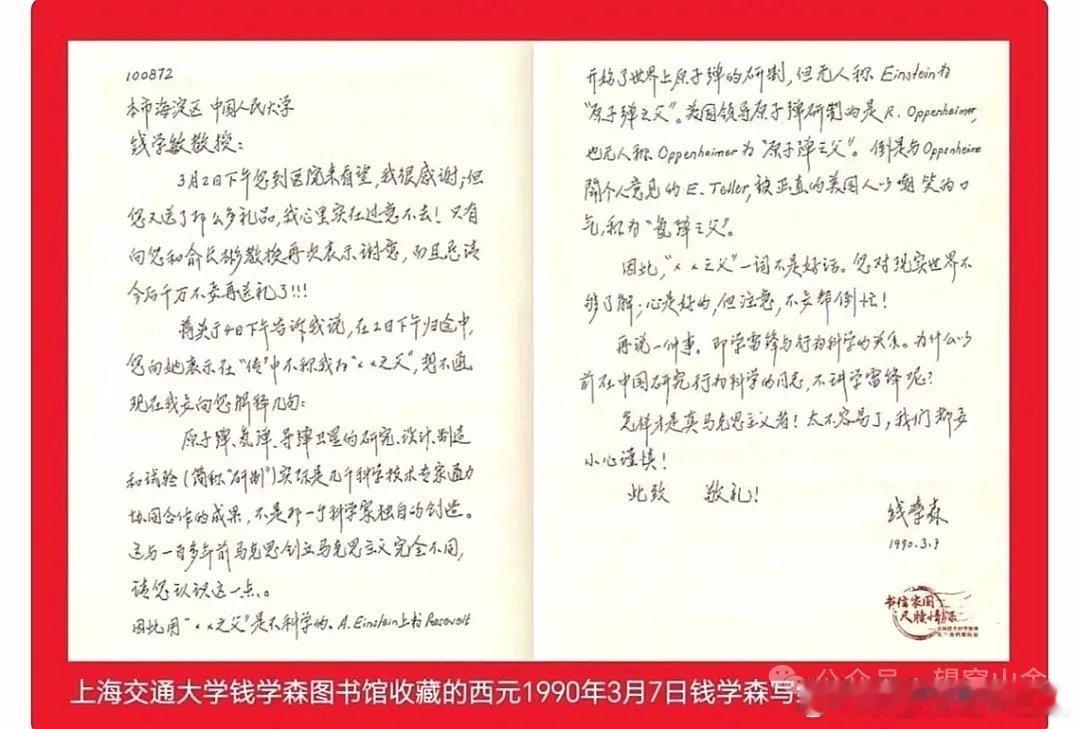 100872
本市海淀区 中国人民大学
钱学敏教授：
3月2日下午您到医院来看望，我很感谢；但
您又送了那么多礼品，我心里实在过意不去！只有
向您和俞长彬教授再次表示谢意，而且恳请
今后千万不要再送礼了!!!
蒋英于4日下午告诉我说，在2日下午归途中，
您向她表示在“传”中不称我为“××之父”，想不通。
现在我要向您解释几句：
原子弹、氢弹、导弹卫星的研究、设计、制造
和试验(简称“研制”)实际是几千科学技术专家通力
协同合作的成果，不是那一个科学家独自的创造。
这与一百多年前马克思创立马克思主义完全不同，
请您认识这一点。
因此用“××之父”是不科学的。A. Einstein上书Rosevelt
开始了世界上原子弹的研制，但无人称Einstein为
“原子弹之父”。美国领导原子弹研制的是R. Oppenheimer,
也无人称Oppenheimer为“原子弹之父”。倒是与Oppenheime
闹个人意见的E. Teller，被正直的美国人以嘲笑的口
气，称为“氢弹之父”。
因此，“××之父”一词不是好话。您对现实世界不
够了解；心是好的，但注意，不要帮倒忙！
再说一件事。即学雷锋与行为科学的关系。为什么以
前在中国研究行为科学的同志，不讲学雷锋呢？
怎样才是真马克思主义者！太不容易了，我们都要
小心谨慎！
此致 敬礼！
钱学森
1990.3.7
书信家国
尺牍情深
上海交通大学钱学森图书馆收藏的西元1990年3月7日钱学森写
公众号